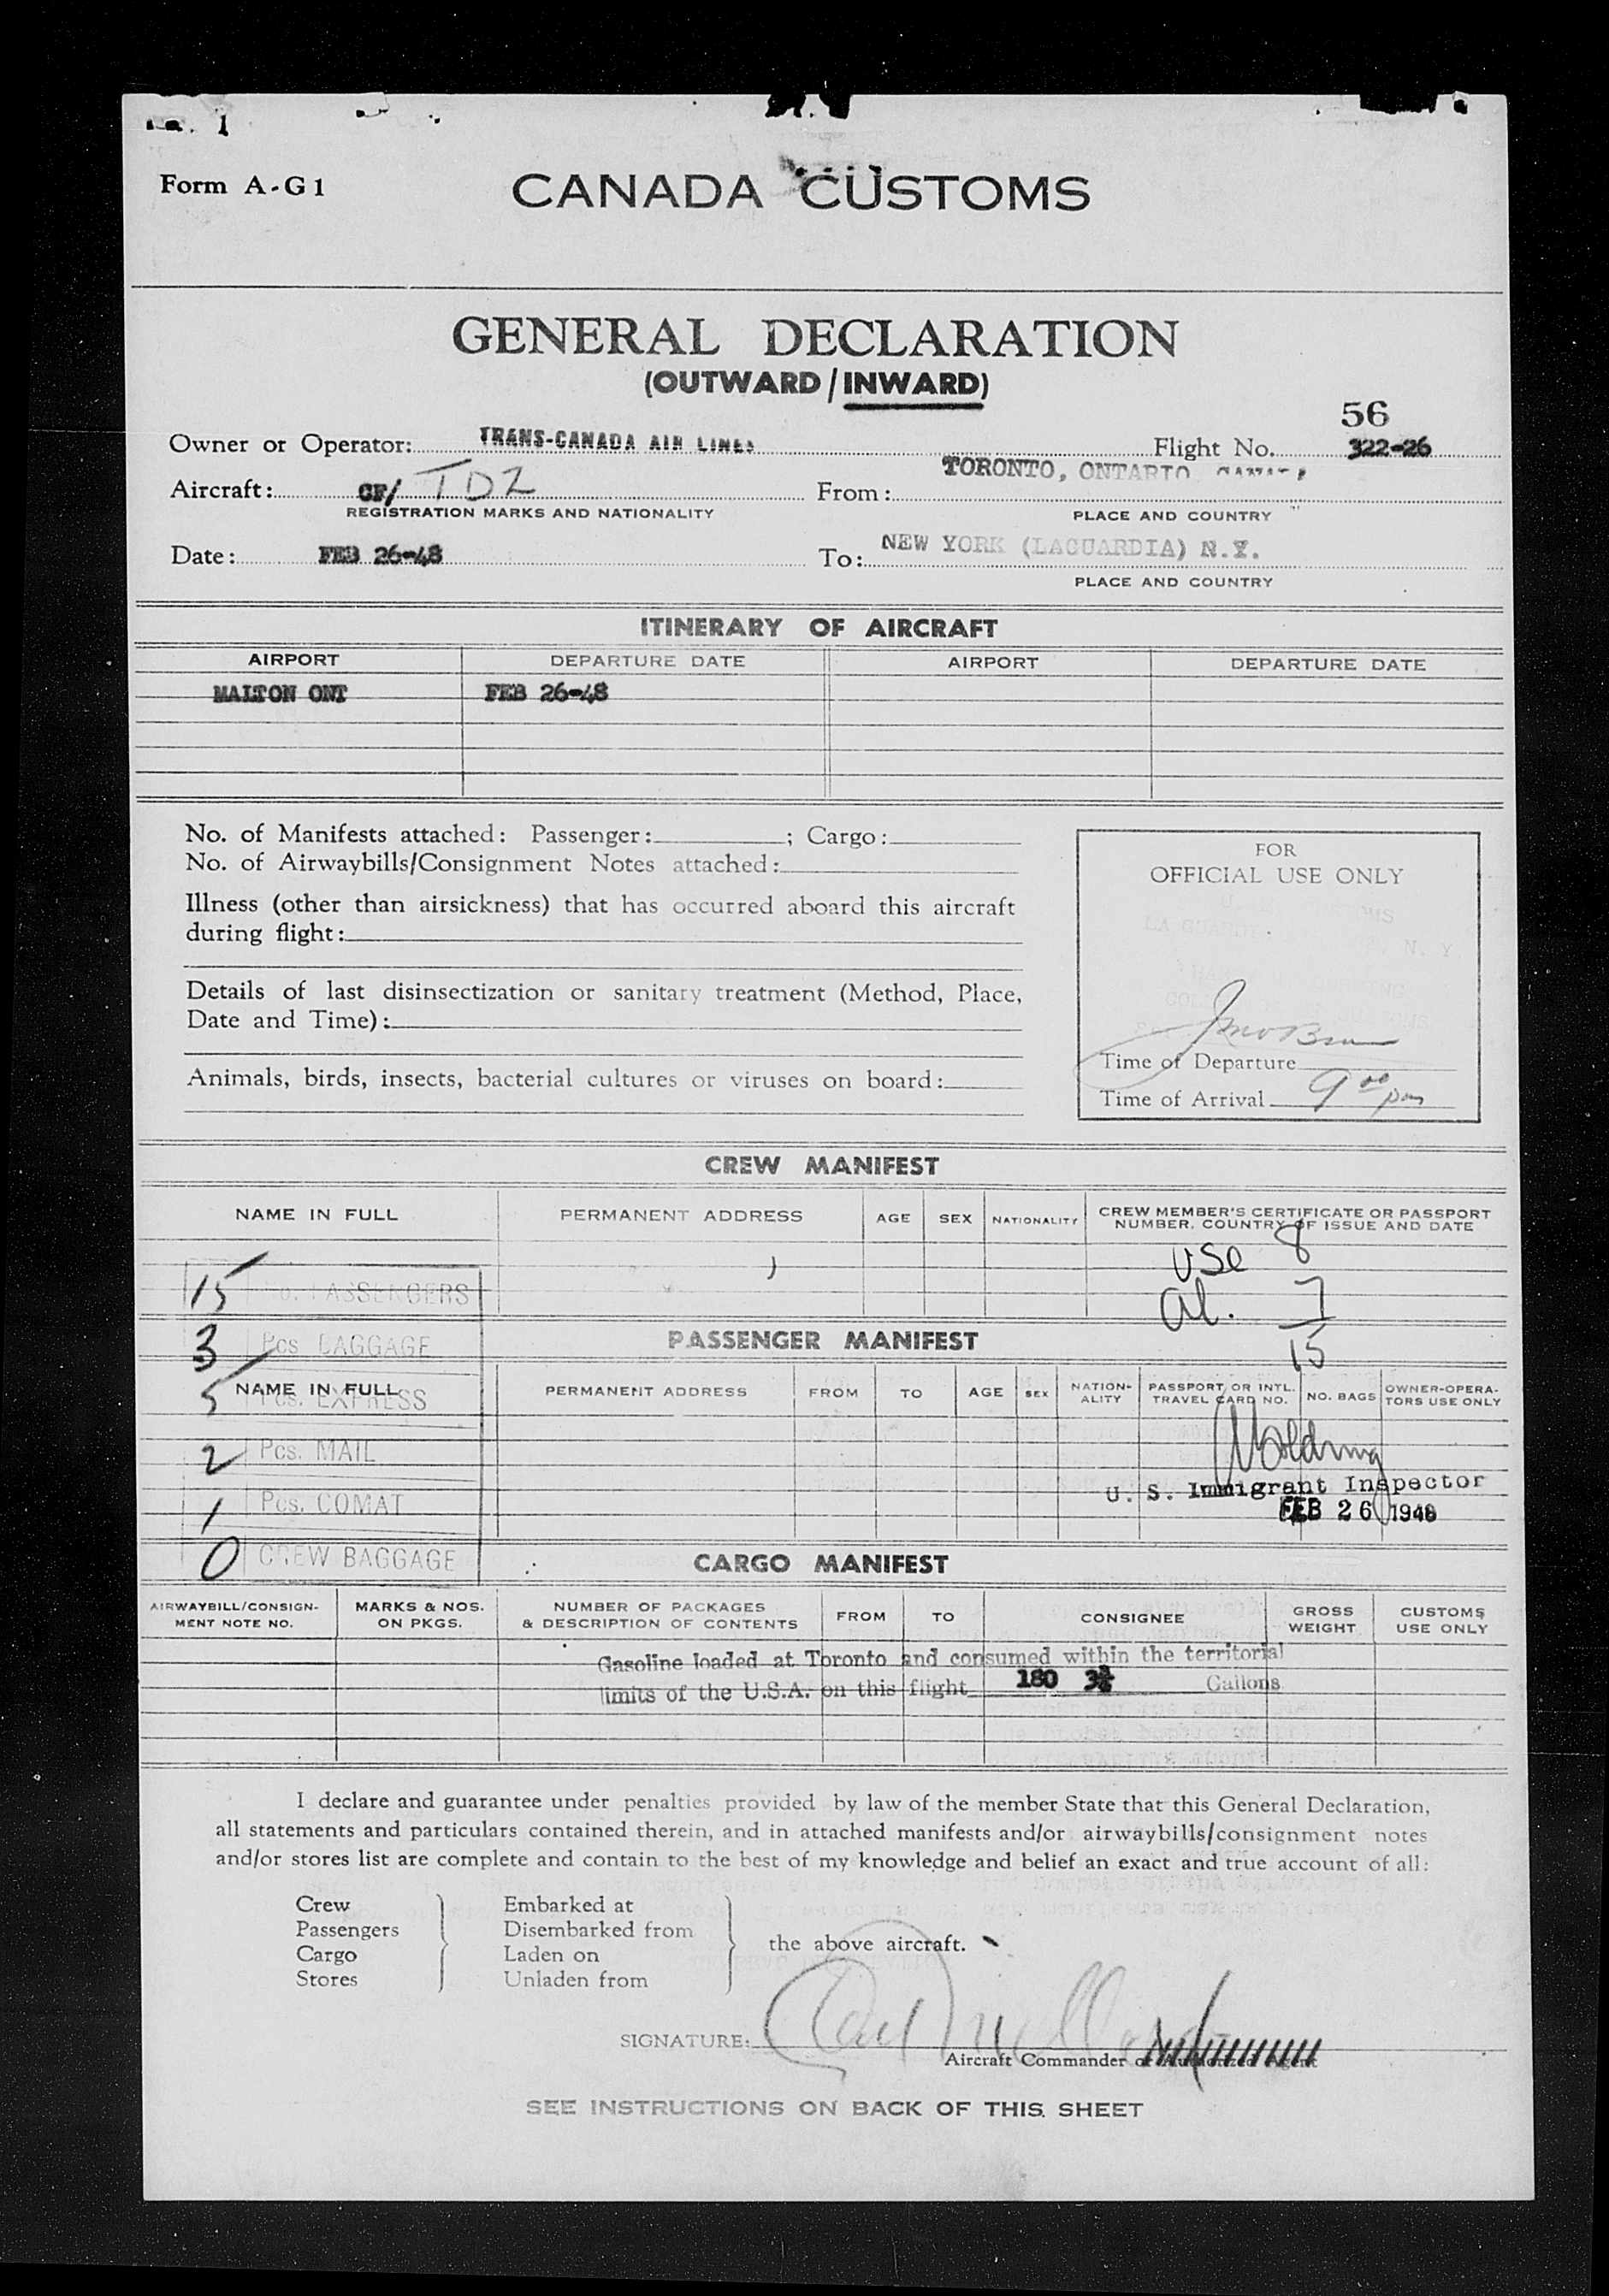 Form A-G1
CANADA CUSTOMS
GENERAL DECLARATION
(OUTWARD/INWARD)
56
Owner or Operator: TRANS-CANADA AIR LINES Flight No. 322-26
Aircraft: CF/ TDZ From: TORONTO, ONTARIO
REGISTRATION MARKS AND NATIONALITY PLACE AND COUNTRY
Date: FEB 26-48 To: NEW YORK (LAGUARDIA) N.Y.
PLACE AND COUNTRY
ITINERARY OF AIRCRAFT
AIRPORT DEPARTURE DATE AIRPORT DEPARTURE DATE
MALTON ONT FEB 26-48
No. of Manifests attached: Passenger: ; Cargo:
No. of Airwaybills/Consignment Notes attached:
Illness (other than airsickness) that has occurred aboard this aircraft
during flight:
Details of last disinsectization or sanitary treatment (Method, Place,
Date and Time):
Animals, birds, insects, bacterial cultures or viruses on board:
FOR
OFFICIAL USE ONLY
Time of Departure
Time of Arrival 9 00 pm
CREW MANIFEST
NAME IN FULL PERMANENT ADDRESS AGE SEX NATIONALITY CREW MEMBER'S CERTIFICATE OR PASSPORT
NUMBER, COUNTRY OF ISSUE AND DATE
USC 8
al. 7
15
15 No. PASSENGERS
3 Pcs BAGGAGE
5 Pcs. EXPRESS
2 Pcs. MAIL
1 Pcs. COMAT
0 CREW BAGGAGE
PASSENGER MANIFEST
NAME IN FULL PERMANENT ADDRESS FROM TO AGE SEX NATION-
ALITY PASSPORT OR INTL.
TRAVEL CARD NO. NO. BAGS OWNER-OPERA-
TORS USE ONLY
U. S. Immigrant Inspector
FEB 26 1948
CARGO MANIFEST
AIRWAYBILL/CONSIGN-
MENT NOTE NO. MARKS & NOS.
ON PKGS. NUMBER OF PACKAGES
& DESCRIPTION OF CONTENTS FROM TO CONSIGNEE GROSS
WEIGHT CUSTOMS
USE ONLY
Gasoline loaded at Toronto and consumed within the territorial
limits of the U.S.A. on this flight 180 Gallons
I declare and guarantee under penalties provided by law of the member State that this General Declaration,
all statements and particulars contained therein, and in attached manifests and/or airwaybills/consignment notes
and/or stores list are complete and contain to the best of my knowledge and belief an exact and true account of all:
Crew Embarked at
Passengers Disembarked from
the above aircraft.
Cargo Laden on
Stores Unladen from
SIGNATURE:
Aircraft Commander or Authorized Agent
SEE INSTRUCTIONS ON BACK OF THIS SHEET